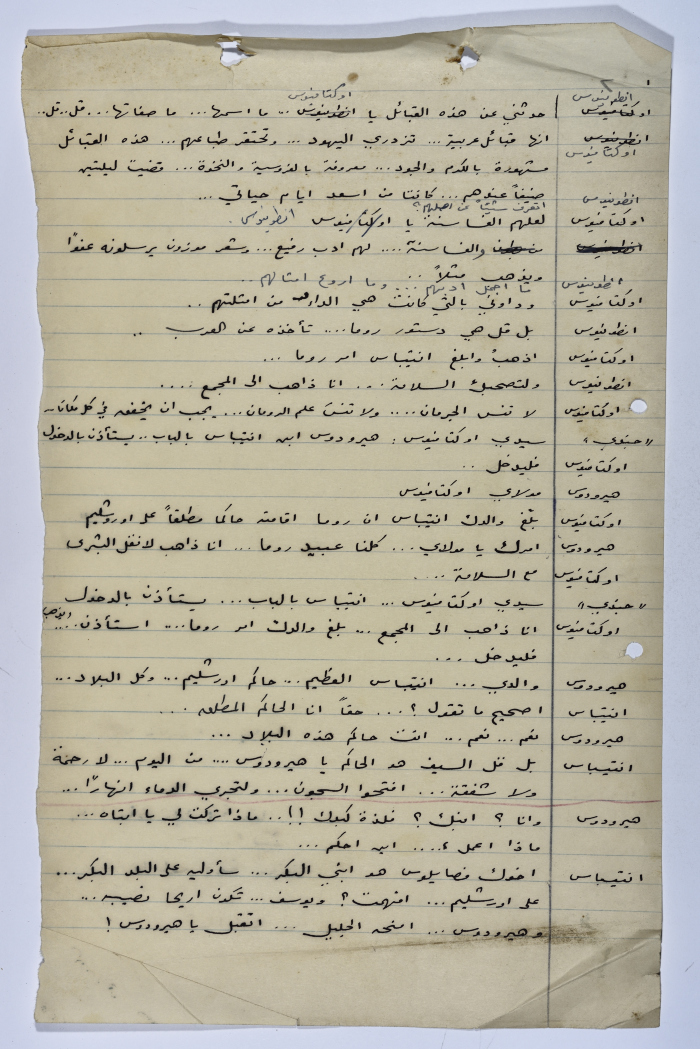 ٢
انطونيوس
اوكتافيوس
اوكتافيوس حدثني عن هذه القبائل يا انطونيوس ... ما اسمها ... ما صفاتها ... قل .. قل ..
انطونيوس انها قبائل عربية ... تزدري اليهود ... وتحتقر طباعهم ... هذه القبائل
اوكتافيوس
مشهورة بالكرم والجود ... معروفة بالفروسية والنخوة ... قضيت ليلتين
انطونيوس ضيفاً عندهم ... كانتا من اسعد ايام حياتي ...
اتعرف شيئاً عن اصلهم ؟
اوكتافيوس لعلهم الغساسنة يا اوكتافيوس انطونيوس .
انطونيوس والغساسنة .... لهم ادب رفيع ... وشعر موزون يرسلونه عفواً
ويذهب مثلاً ..
انطونيوس ما اجمل ادبهم .... وما اروع امثالهم ..
اوكتافيوس وداوني بالتي كانت هي الداء من امثلتهم ..
انطونيوس بل قل هي دستور روما .... تأخذه عن العرب ..
اوكتافيوس اذهب وابلغ انتيباس امر روما ...
انطونيوس ولتصحبك السلامة ... انا ذاهب الى المجمع ....
اوكتافيوس لا تنس الجرمان ..... ولا تنس علم الرومان ... يجب ان يخفق في كل مكان ..
"جندي" سيدي اوكتافيوس : هيرودوس ابن انتيباس بالباب .. يستأذن بالدخول
اوكتافيوس فليدخل ..
هيرودوس مولاي اوكتافيوس
اوكتافيوس بلّغ والدك انتيباس ان روما اقامته حاكما مطلقاً على اورشليم
هيرودوس امرك يا مولاي ... كلنا عبيد روما ... انا ذاهب لانقل البشرى
اوكتافيوس مع السلامة ....
"جندي" سيدي اوكتافيوس ... انتيباس بالباب ... يستأذن بالدخول
اوكتافيوس انا ذاهب الى المجمع ... بلغ والدك امر روما .... استأذن ....
فليدخل ...
هيرودوس والدي ... انتيباس العظيم ... حاكم اورشليم ... وكل البلاد ...
انتيباس اصحيح ما تقول ؟ ... حقاً انا الحاكم المطلق ...
هيرودوس نعم ... نعم ... انت حاكم هذه البلاد ...
انتيباس بل قل السيف هو الحاكم يا هيرودوس .... من اليوم ... لا رحمة
ولا شفقة ... افتحوا السجون ... ولتجري الدماء انهاراً ...
هيرودوس وانا ؟ ابنك ؟ فلذة كبدك !! .. ماذا تركت لي يا ابتاه ...
ماذا اعمل ؟ .... اين احكم ...
انتيباس اخوك فصايلوس هو ابني البكر ... سأوليه على البلد البكر ...
على اورشليم ... افهمت ؟ ويوسف ... تكون اريحا نصيبه ...
وهيرودوس ... امنحه الجليل ... اتقبل يا هيرودوس !